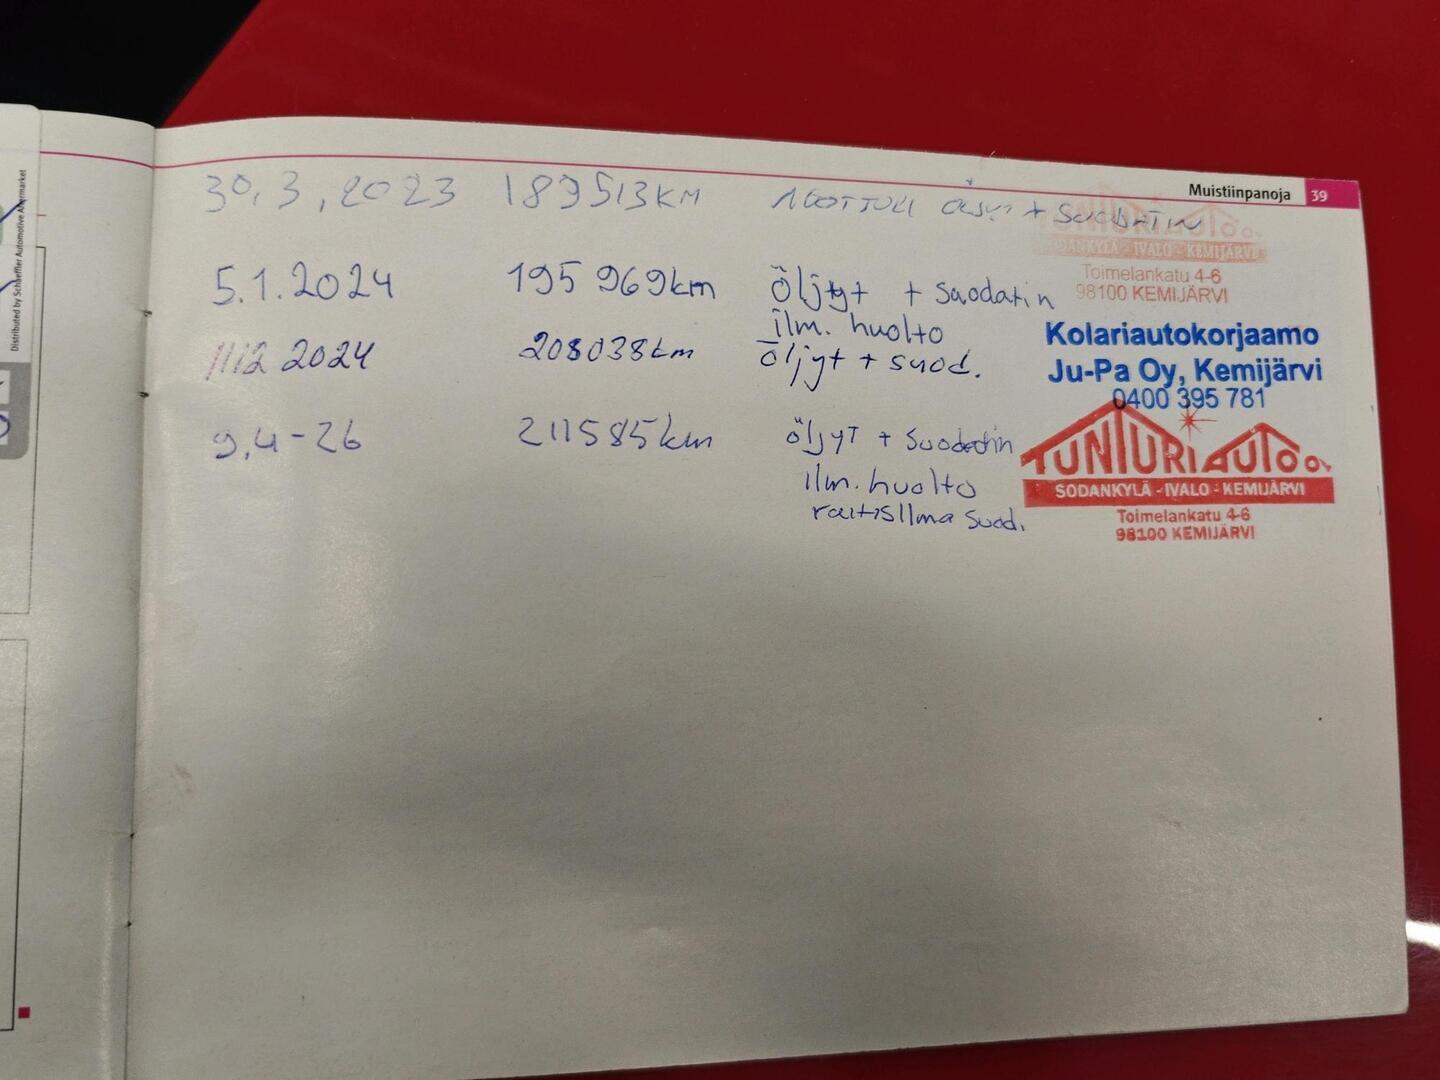 Distributed by Schaeffler Automotive Aftermarket
Muistiinpanoja 39
30.3.2023 189513KM öljyt + SUODATIN
TUNTURIAUTO OY
SODANKYLÄ - IVALO - KEMIJÄRVI
Toimelankatu 4-6
98100 KEMIJÄRVI
5.1.2024 195 969km öljyt + Suodatin
ilm. huolto
11.12 2024 208038km öljyt + suod.
Kolariautokorjaamo
Ju-Pa Oy, Kemijärvi
0400 395 781
9.4-26 211585km öljyt + Suodatin
ilm. huolto
raitisilma suod.
TUNTURIAUTO OY
SODANKYLÄ - IVALO - KEMIJÄRVI
Toimelankatu 4-6
98100 KEMIJÄRVI